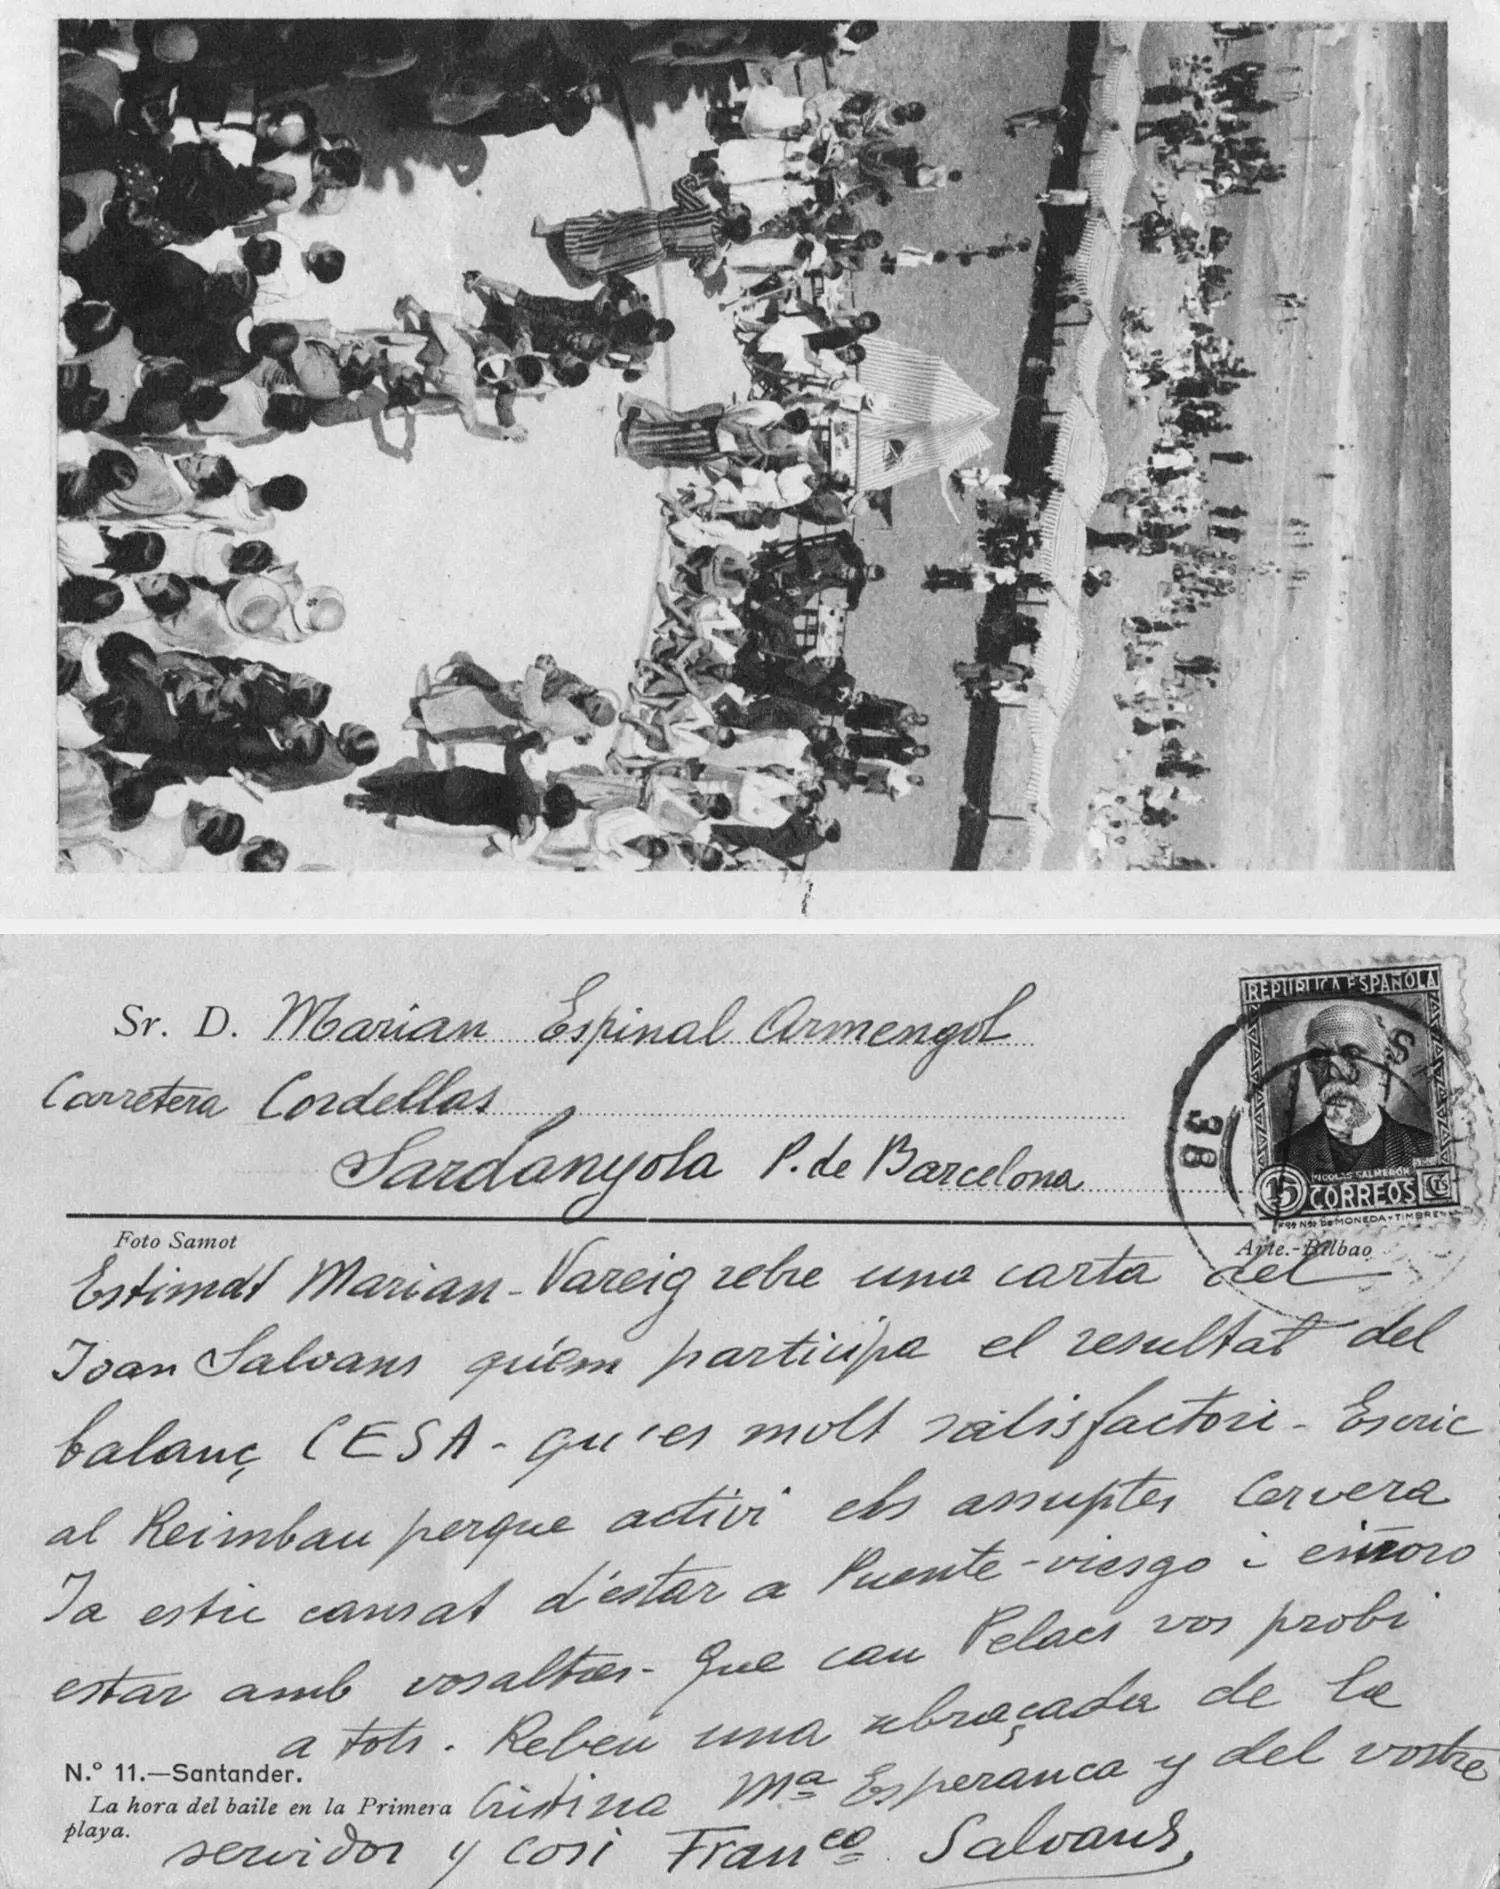 Sr. D. Marian Espinal Armengol
Carretera Cordellas
Sardanyola P. de Barcelona
REPUBLICA ESPAÑOLA
38
S
NICOLAS SALMERON
15 CORREOS Cts
Fca Nal DE MONEDA Y TIMBRE
Foto Samot
Arte.-Bilbao
Estimat Marian - Vareig rebre una carta del
Joan Salvans qu'em participa el resultat del
balanç CESA - qu'es molt satisfactori - Escric
al Reimbau perque activi els assuptes Cervera
Ja estic cansat d'estar a Puente-viesgo i enyoro
estar amb vosaltres - Que can Pelacs vos probi
a tots. Rebeu una abraçada de la
Cristina Mª Esperanca y del vostre
servidor y cosi Franco Salvans,
N.º 11.—Santander.
La hora del baile en la Primera
playa.